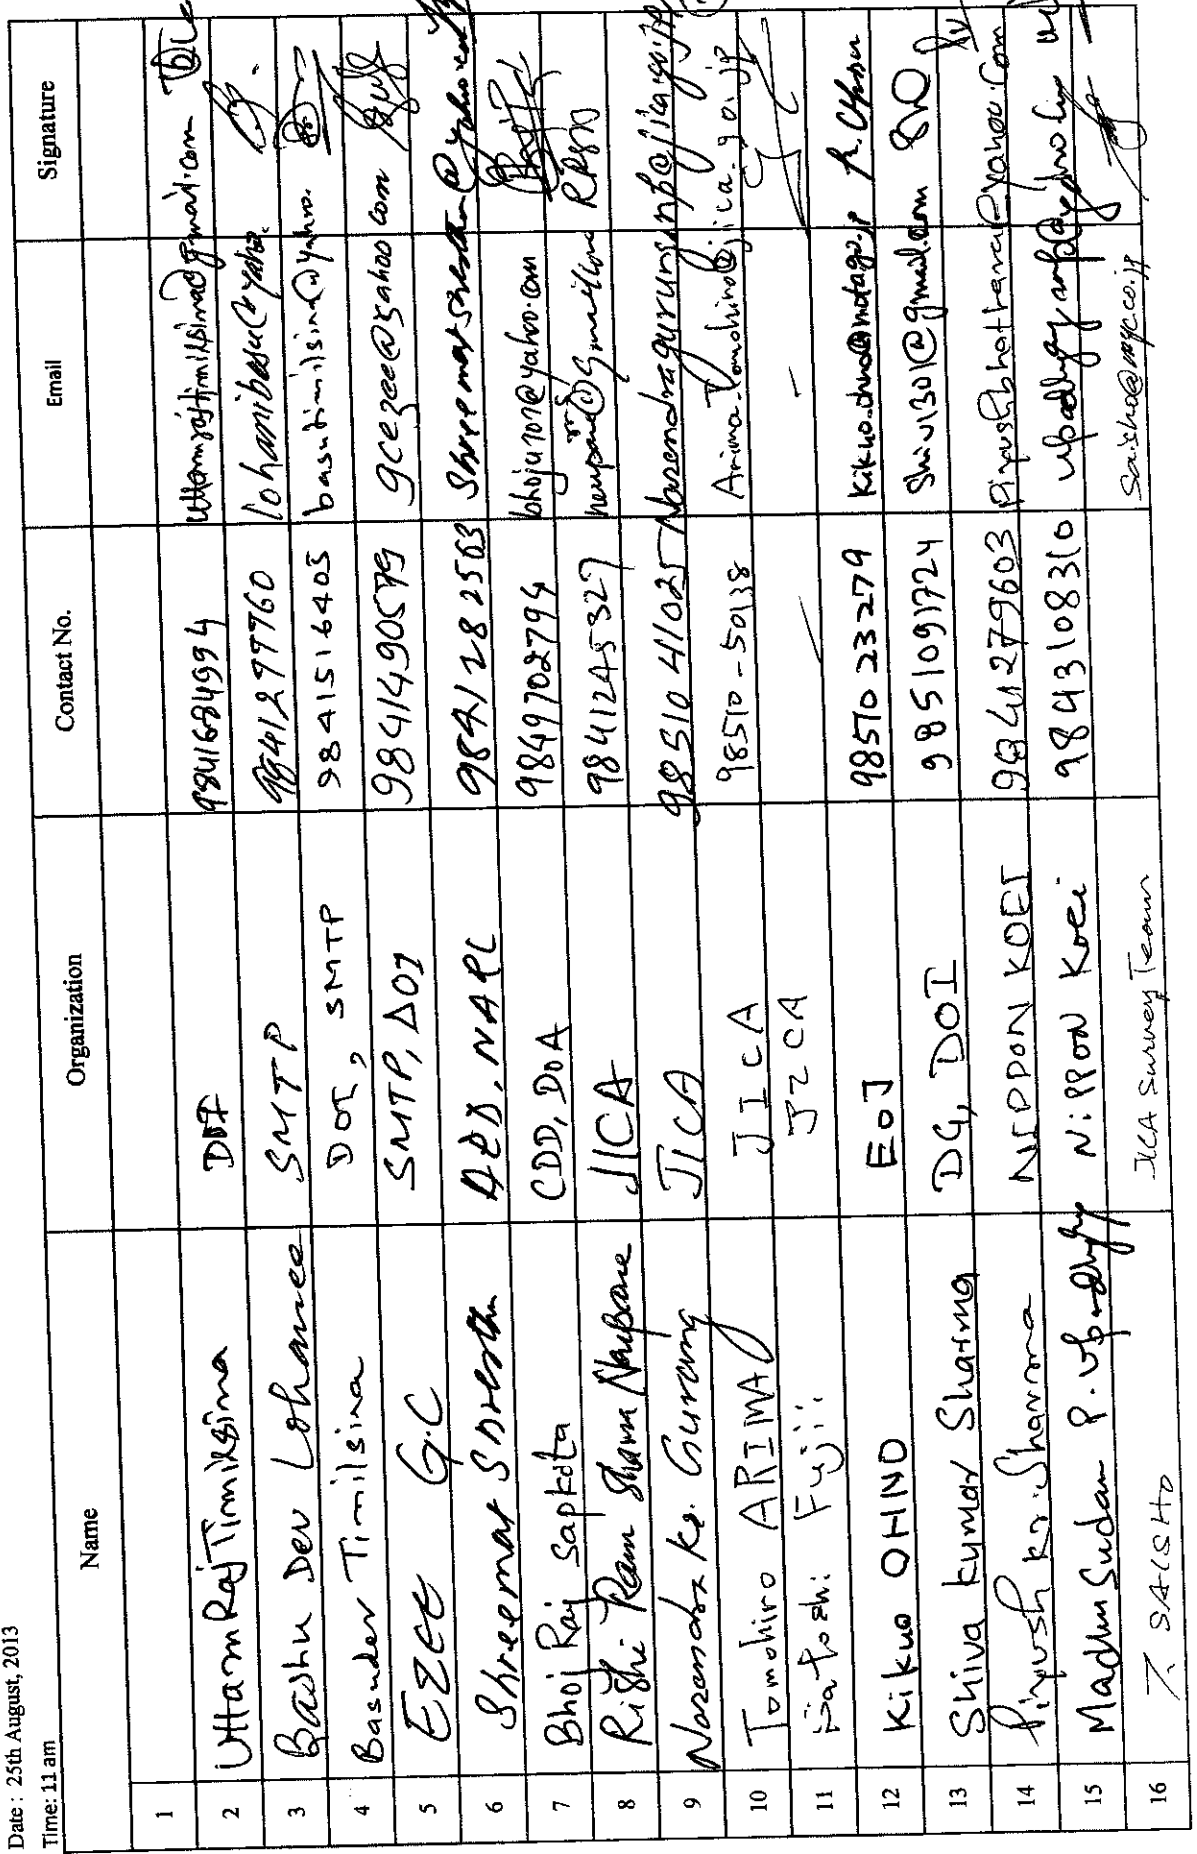 Date : 25th August, 2013
Time: 11 am
Name Organization Contact No. Email Signature
1
2 Uttam Raj Timilsina DOI 9841684994
3 Bashu Dev Lohanee SMTP 9841297760 lohanibasu@yahoo.
4 Basudev Timilsina DOI, SMTP 9841516405 basutimilsina@yahoo.
5 EZEE G.C SMTP, DOI 9841490579 gcezee@yahoo com
6 Shreemat Shrestha AED, NARC 9841282563 Shreematshrestha@yahoo.com
7 Bhoj Raj Sapkota CDD, DoA 9849702794 bhoju707@yahoo.com
8 Rishi Ram Sharma Neupane JICA 9841245327
9 Narendra Kr. Gurung JICA 98510 41025 Narendragurung.np@jica.go.jp
10 Tomohiro ARIMA JICA 98510-50138 Arima.Tomohiro@jica.go.jp
11 Satoshi Fujii JICA - -
12 Kikuo OHNO EOJ 98510 23279 Kikuo.ohno@mofa.go.jp K. Ohno
13 Shiva Kumar Sharma DG, DOI 9851091724 Shiv1301@gmail.com
14 Piyush Kr. Sharma NIPPON KOEI 9841279603 Piyushbhatharai@yahoo.com
15 Madhu Sudan P. Upadhyay NiPPON Koei 9843108310
16 7. SAISHO JICA Survey Team saisho@myc.co.jp